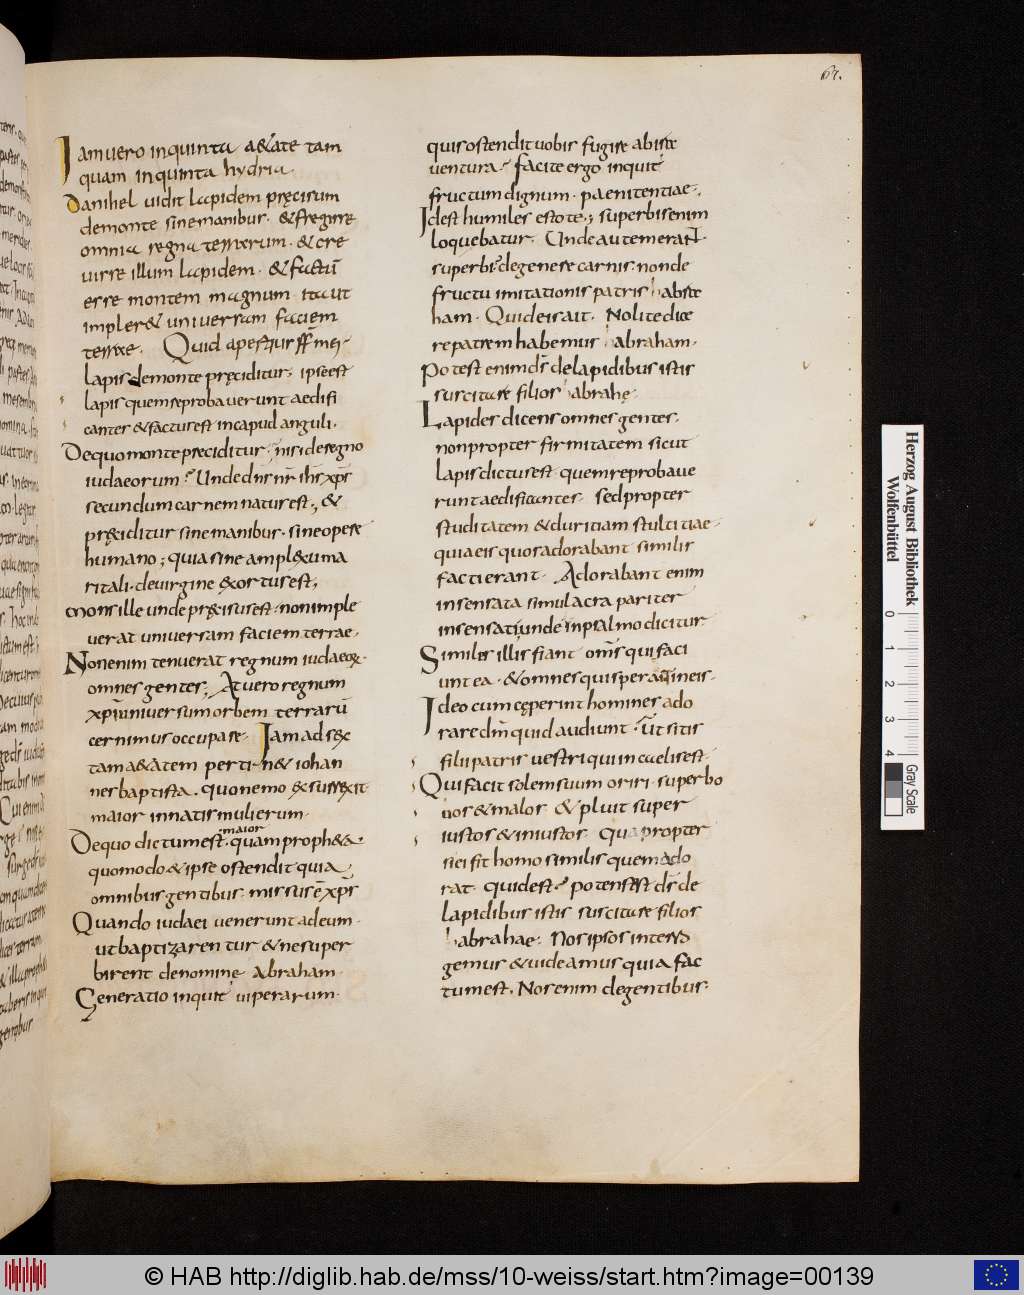 67.
Iam uero in quinta aetate tam
quam in quinta hydria.
Danihel uidit lapidem pręcisum
de monte sine manibus. & fregisse
omnia regna terrarum. & cre
uisse illum lapidem. & factū
esse montem magnum. ita ut
impler& uniuersam faciem
terrae. Quid apertius fr̄s mei.
lapis de monte pręciditur. ipse est
lapis quem reprobauerunt aedifi
cantes & factus est in caput anguli.
De quo monte preciditur. nisi de regno
iudaeorum? Unde dns nr̄ ih̄s xp̄s
secundum carnem natus est., &
pręciditur sine manibus. sine opere
humano; quia sine amplexu ma
ritali. de uirgine exortus est;
mons ille unde pręcisus est. non imple
uerat uniuersam faciem terrae.
Non enim tenuerat regnum iudaeoꝝ.
omnes gentes; At uero regnum
xp̄i uniuersum orbem terrarū
cernimus occupare. Iam ad sex
tam a&atem pertin& iohan
nes baptista. quo nemo exsurrexit
maior in natis mulierum.
De quo dictum est. maior quam proph&a.
quomodo & ipse ostendit quia
omnibus gentibus. missus ē xp̄s
Quando iudaei uenerunt ad eum.
ut baptizarentur & ne super
birent de nomine Abraham.
Generatio inquit uiperarum.
quis ostendit uobis fugire ab ira
uentura? facite ergo inquit
fructum dignum. paenitentiae.
Idest humiles estote.; superbis enim
loquebatur. Unde autem erant
superbi? de genere carnis. non de
fructu imitationis patris habra
ham. Quid eis ait. Nolite dice
re patrem habemus habraham.
Potest enim ds̄ de lapidibus istis
suscitare filios habrahę.
Lapides dicens omnes gentes.
non propter firmitatem sicut
lapis dictus est. quem reprobaue
runt aedificantes. sed propter
studitatem & duritiam stultitiae.
quia eis quos adorabant similis
facti erant. Adorabant enim
insensata simulacra pariter
insensati unde in psalmo dicitur
Similes illis fiant om̄s qui faci
unt ea. & omnes qui sperant in eis.
Ideo cum cęperint homines ado
rare dm̄ quid audiunt. ut sitis
filii patris uestri qui in caelis est.
Qui facit solem suum oriri. super bo
nos & malos & pluit super
iustos & iniustos. Quapropter
si ei fit homo similis quem ado
rat. quid est? potens est ds̄ de
lapidibus istis suscitare filios
habrahae. Nos ipsos interro
gemus & uideamus quia fac
tum est. Nos enim de gentibus.
Herzog August Bibliothek
Wolfenbüttel
0 1 2 3 4
Gray Scale
© HAB http://diglib.hab.de/mss/10-weiss/start.htm?image=00139